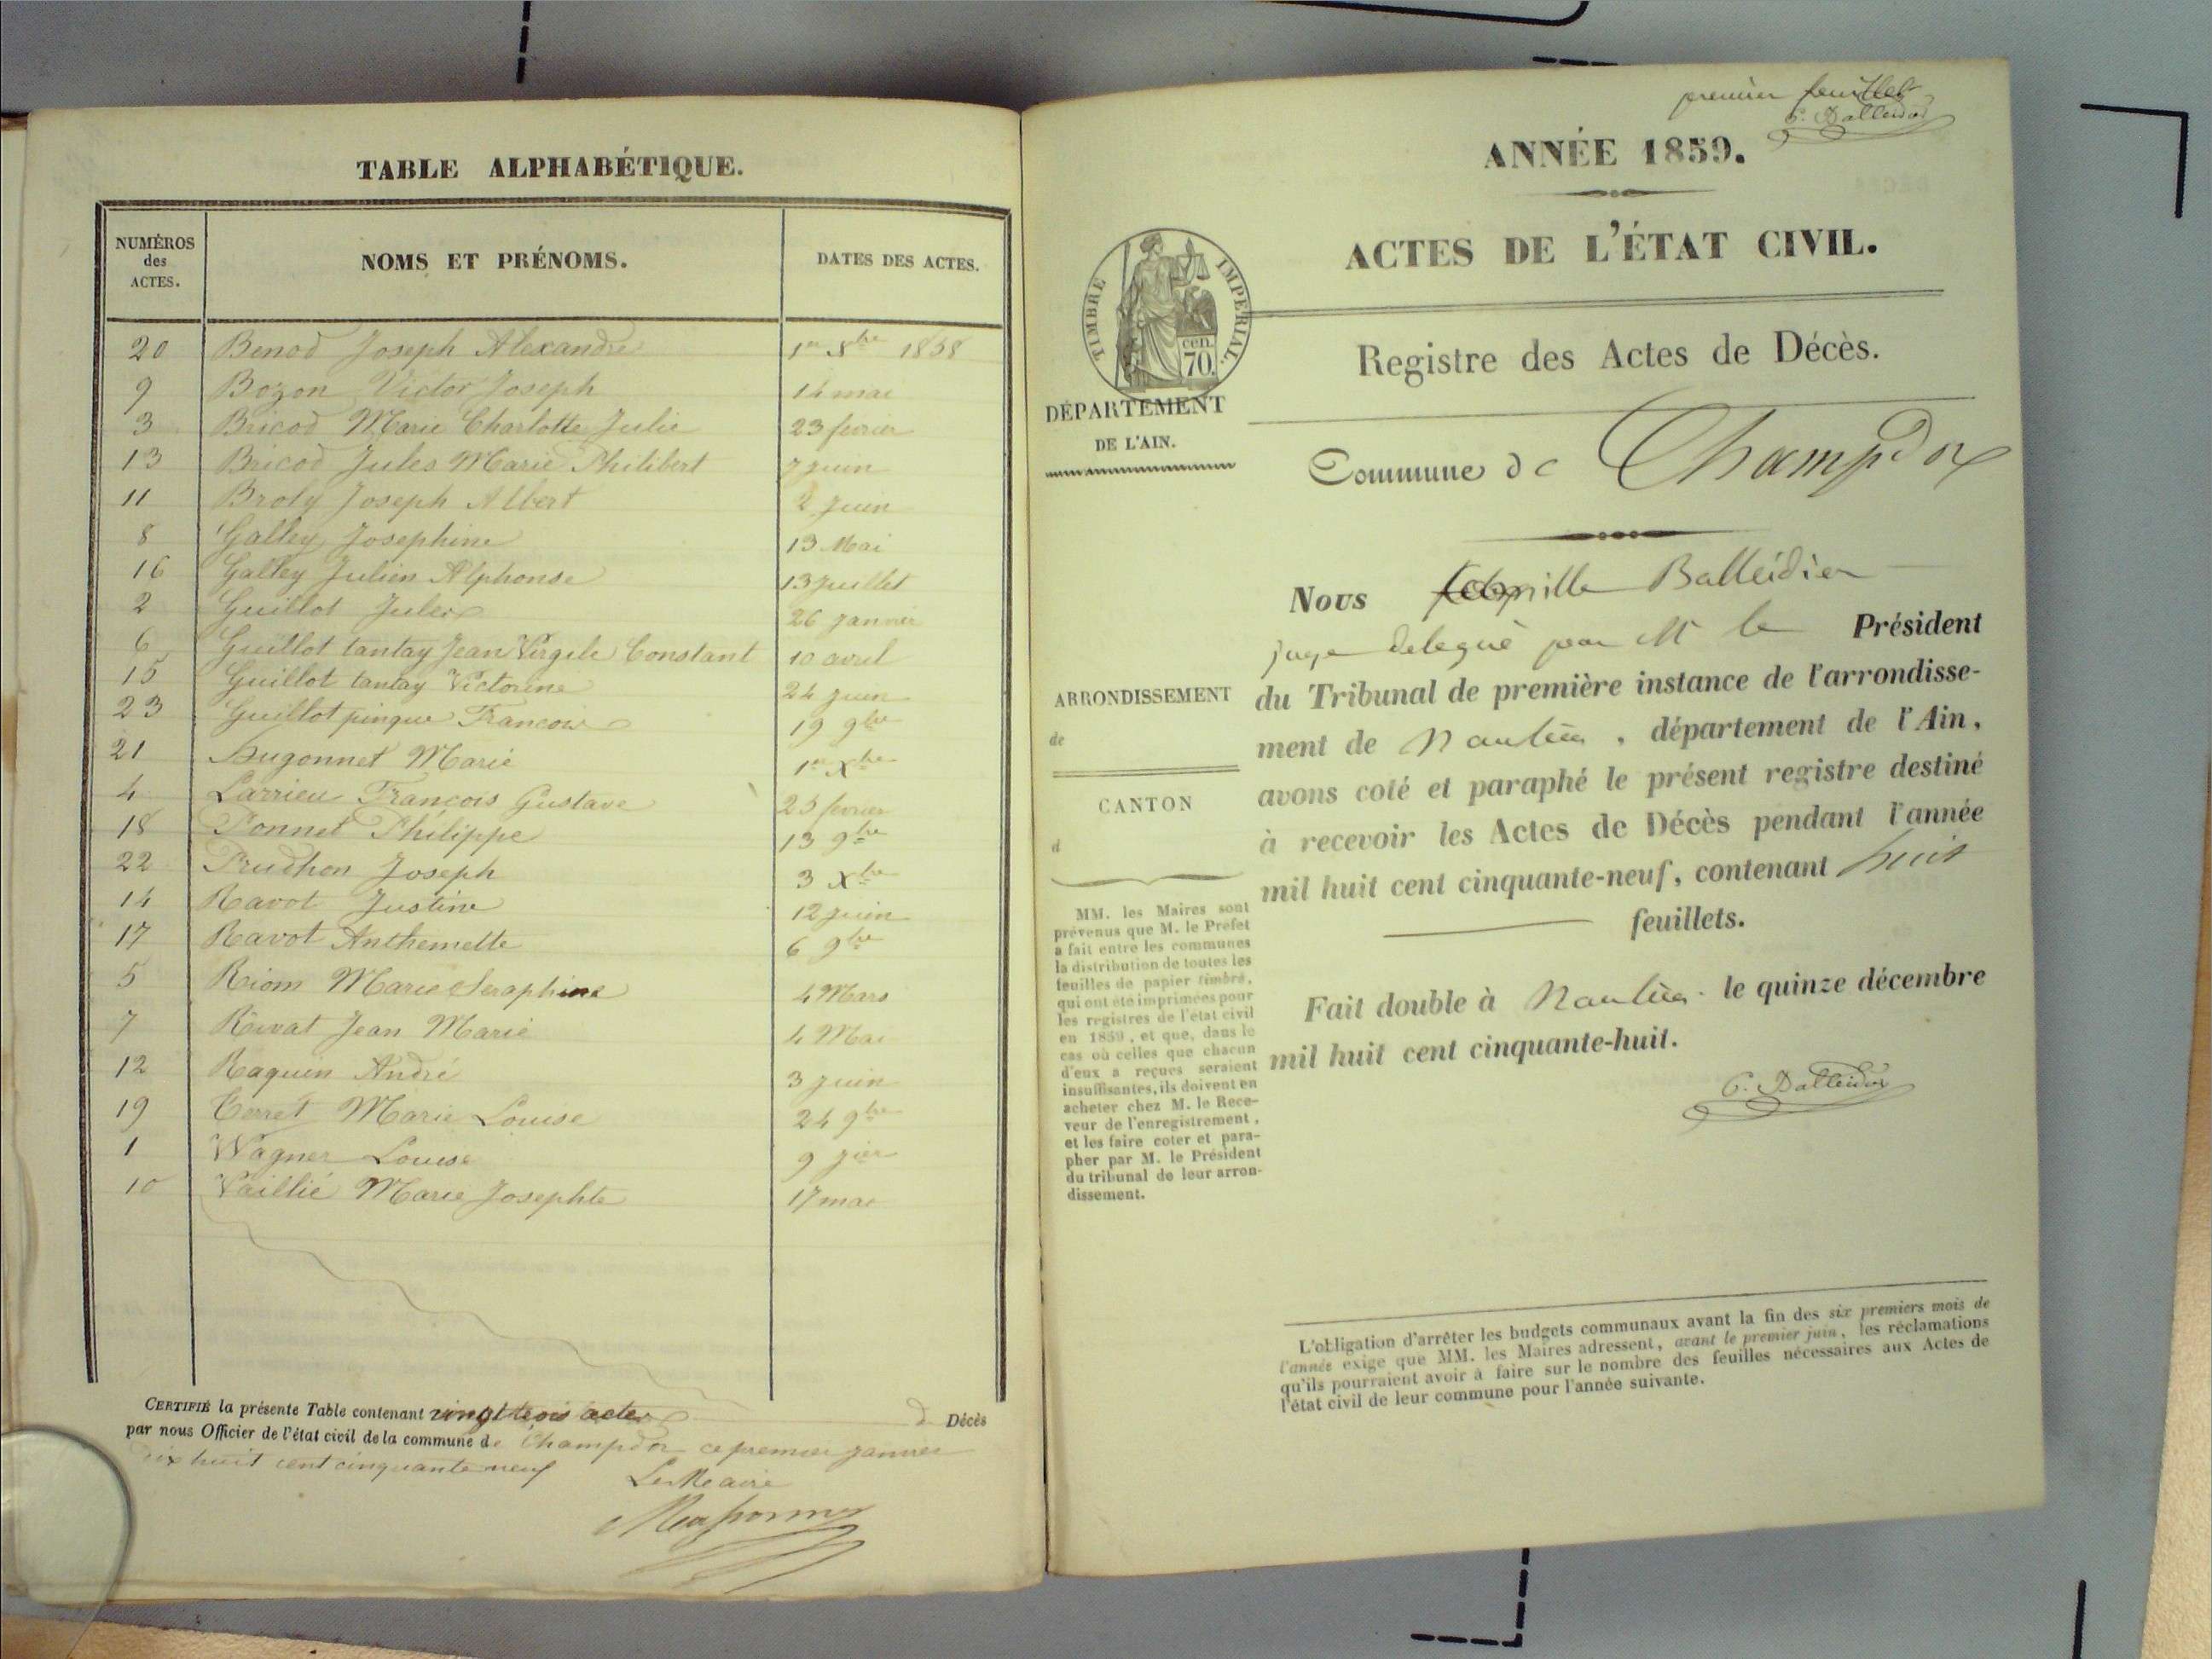 TABLE ALPHABÉTIQUE.
NUMÉROS des ACTES. NOMS ET PRÉNOMS. DATES DES ACTES.
20 Benod Joseph Alexandre 1er Xbre 1858
9 Bozon Victor Joseph 14 mai
3 Bricod Marie Charlotte Julie 23 février
13 Bricod Jules Marie Philibert 7 juin
11 Broly Joseph Albert 2 juin
8 Galley Josephine 13 Mai
16 Galley Julien Alphonse 13 juillet
2 Guillot Jules 26 janvier
6 Guillot tantay Jean Virgile Constant 10 avril
15 Guillot tantay Victorine 24 juin
23 Guillot pinque Francois 19 9bre
21 Hugonnet Marie 1er Xbre
4 Larrieu François Gustave 25 fevrier
18 Ponnet Philippe 13 9bre
22 Prudhon Joseph 3 Xbre
14 Ravot Justine 12 juin
17 Ravot Anthemette 6 9bre
5 Riom Marie Seraphine 4 Mars
7 Rivat Jean Marie 4 Mai
12 Raquin André 3 juin
19 Terret Marie Louise 24 9bre
1 Wagner Louise 9 jier
10 Vaillié Marie Josephte 17 mai
CERTIFIÉ la présente Table contenant vingt trois actes d Décès
par nous Officier de l'état civil de la commune de Champdor ce premier janvier
dix huit cent cinquante neuf
Le Maire
premier feuillet
C. Balleidier
ANNÉE 1859.
ACTES DE L'ÉTAT CIVIL.
TIMBRE IMPERIAL.
cen.
70.
DÉPARTEMENT
DE L'AIN.
Registre des Actes de Décès.
Commune de Champdor
Nous Camille Balleidier
juge delegué par Mr le Président
du Tribunal de première instance de l'arrondisse-
ment de Nantua, département de l'Ain,
avons coté et paraphé le présent registre destiné
à recevoir les Actes de Décès pendant l'année
mil huit cent cinquante-neuf, contenant huit
feuillets.
Fait double à Nantua le quinze décembre
mil huit cent cinquante-huit.
C. Balleidier
ARRONDISSEMENT
de
CANTON
d
MM. les Maires sont
prévenus que M. le Préfet
a fait entre les communes
la distribution de toutes les
feuilles de papier timbré,
qui ont été imprimées pour
les registres de l'état civil
en 1859, et que, dans le
cas où celles que chacun
d'eux a reçues seraient
insuffisantes, ils doivent en
acheter chez M. le Rece-
veur de l'enregistrement,
et les faire coter et para-
pher par M. le Président
du tribunal de leur arron-
dissement.
L'obligation d'arrêter les budgets communaux avant la fin des six premiers mois de
l'année exige que MM. les Maires adressent, avant le premier juin, les réclamations
qu'ils pourraient avoir à faire sur le nombre des feuilles nécessaires aux Actes de
l'état civil de leur commune pour l'année suivante.